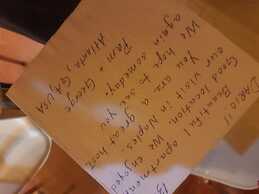 DARIO !!
Beautiful apartment
Good location. We enjoyed
our visit in Naples
You are a great host
We hope to see you
again someday.
Pam + George
Atlanta, GA, USA